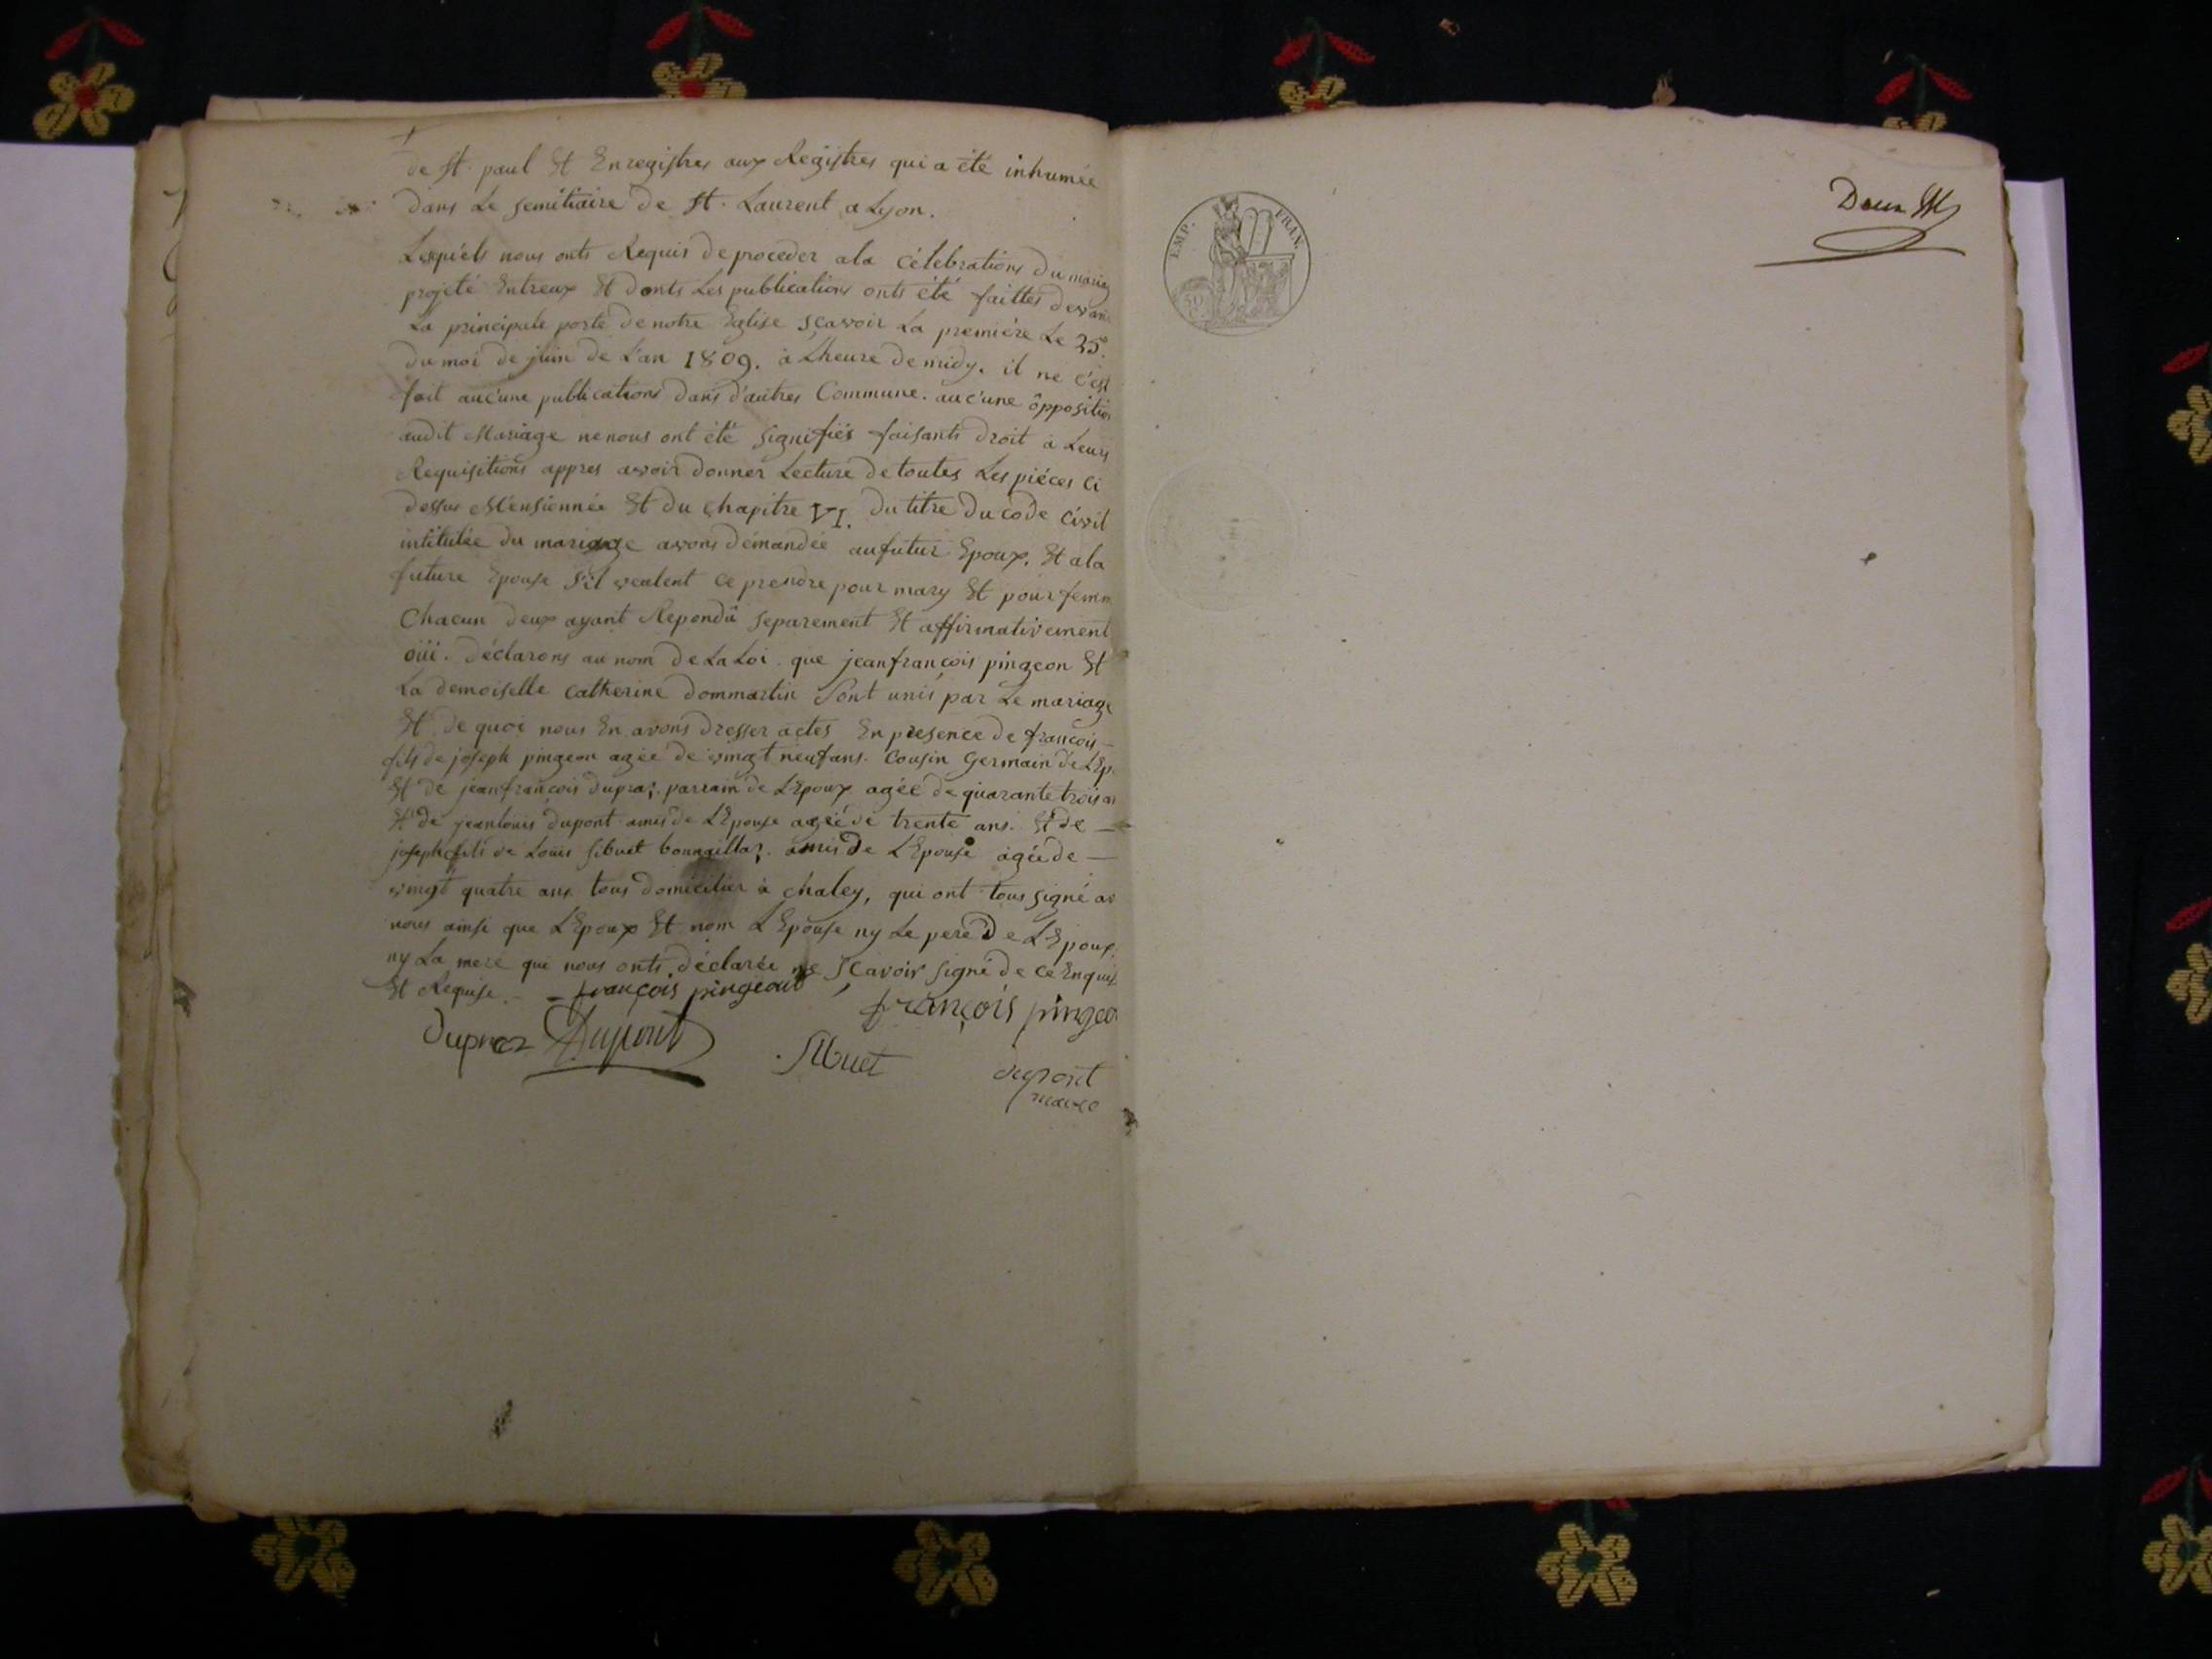 de St. paul Et Enregistres aux Registres qui a été inhumée
dans Le semitiaire de St. Laurent a Lyon.
Lesquels nous onts Requis de proceder ala célébrations du mariag
projeté Entreux Et donts Les publications onts été faittes devan
La principale porte de notre Eglise sçavoir La première Le 25.
du moi de juin de L'an 1809. à Lheure de midy. il ne c'est
fait auc'une publications dans d'autres Commune. auc'une opposition
audit Mariage ne nous ont été signifiés faisants droit à Leurs
Requisitions appres avoir donner Lecture de toutes Les piéces ci
dessus Mensionnée Et du chapitre VI. du titre du code civil
intitulée du mariage avons démandée au futur Epoux. Et ala
future Epouse s'il veulent ce prendre pour mary Et pour femm
Chacun deux ayant Repondû separement Et affirmativement
oüi. déclarons au nom de La Loi que jeanfrançois pingeon Et
La demoiselle catherine dommartin sont unis par Le mariage
Et de quoi nous En avons dresser actes En presence de françois
fils de joseph pingeon agée de vingt neuf ans. Cousin Germain de LEp
Et de jeanfrançois dupraz. parrain de LEpoux agée de quarante trois an
Et de jeanlouis dupont amis de LEpouse agée de trente ans. Et de
joseph fils de Louis sibuet bonnaillaz. amis de L'Epouse agée de
vingt quatre ans tous domicilier à chaley, qui ont tous signé av
nous ainsi que LEpoux Et nom LEpouse ny Le pere de LEpoux.
ny La mere qui nous onts déclarée ne sçavoir signé de ce Enquis
Et Requise. françois pingeout
françois pingeo
Dupraz Dupont
Sibuet
dupont
maire
EMP. FRAN.
50
Deux